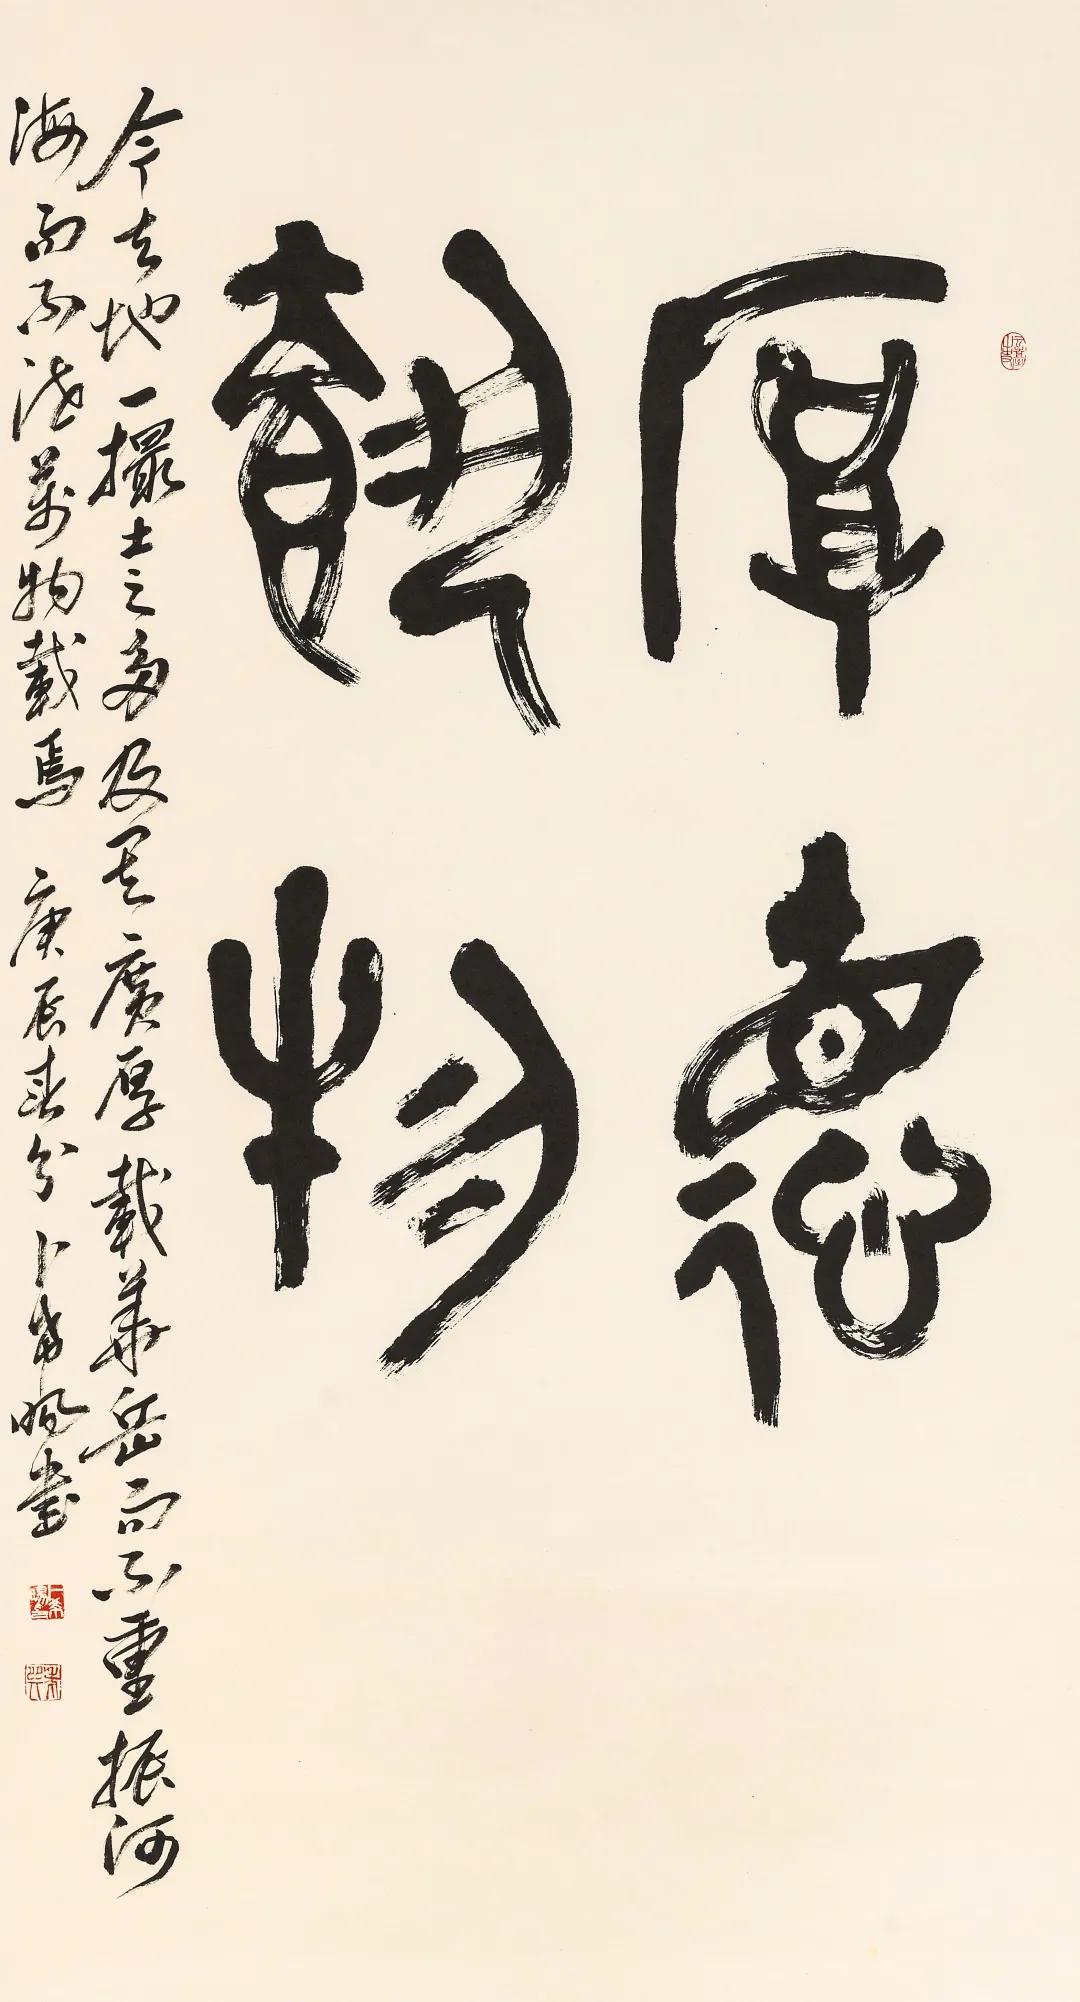 厚德
載物
今夫地一撮土之多及其廣厚載華岳而不重振河
海而不洩萬物載焉 庚辰春分卜希暘書